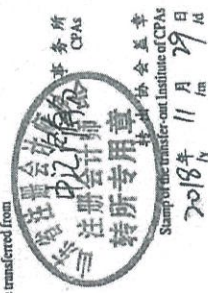 transferred from
事务所
CPAs
东省注册会计师
注册会计师
转所专用章
协会盖章
Stamp of the transfer-out Institute of CPAs
2018年 11月 29日
/y /m /d